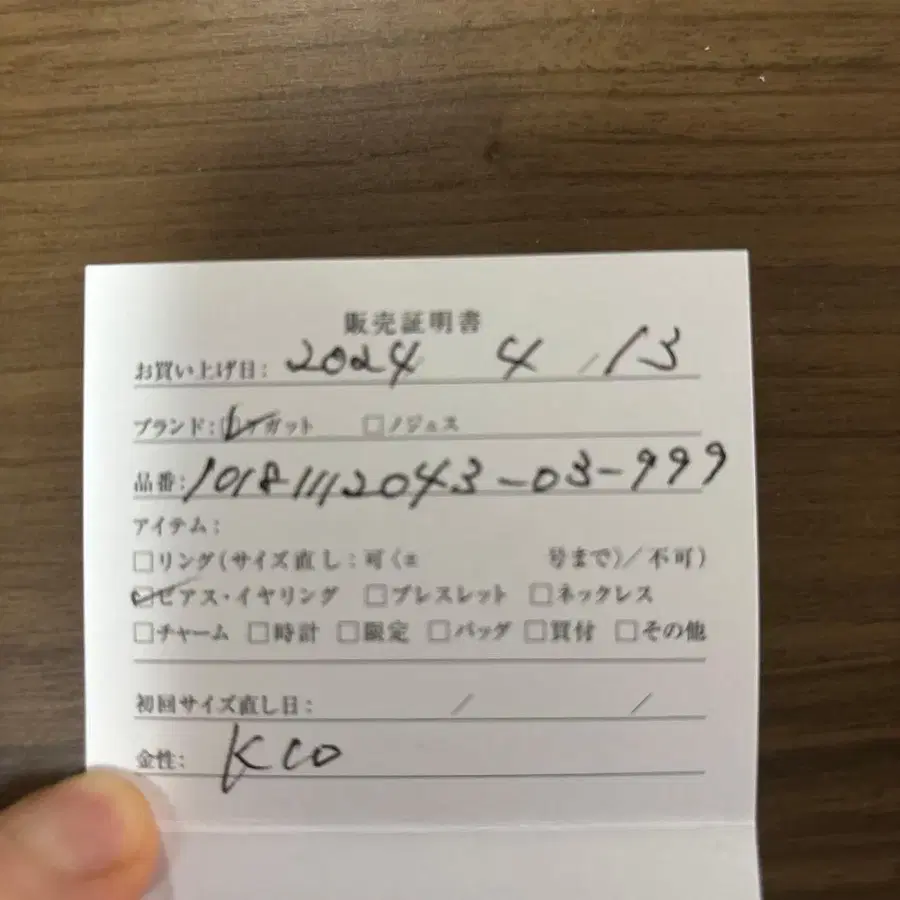 販売証明書
お買い上げ日: 2024 4 / 13
ブランド: ☑アガット □ノジェス
品番: 10181112043-03-999
アイテム:
□リング(サイズ直し:可(± 号まで)/不可)
☑ピアス・イヤリング □ブレスレット □ネックレス
□チャーム □時計 □限定 □バッグ □買付 □その他
初回サイズ直し日: / /
金性: K10